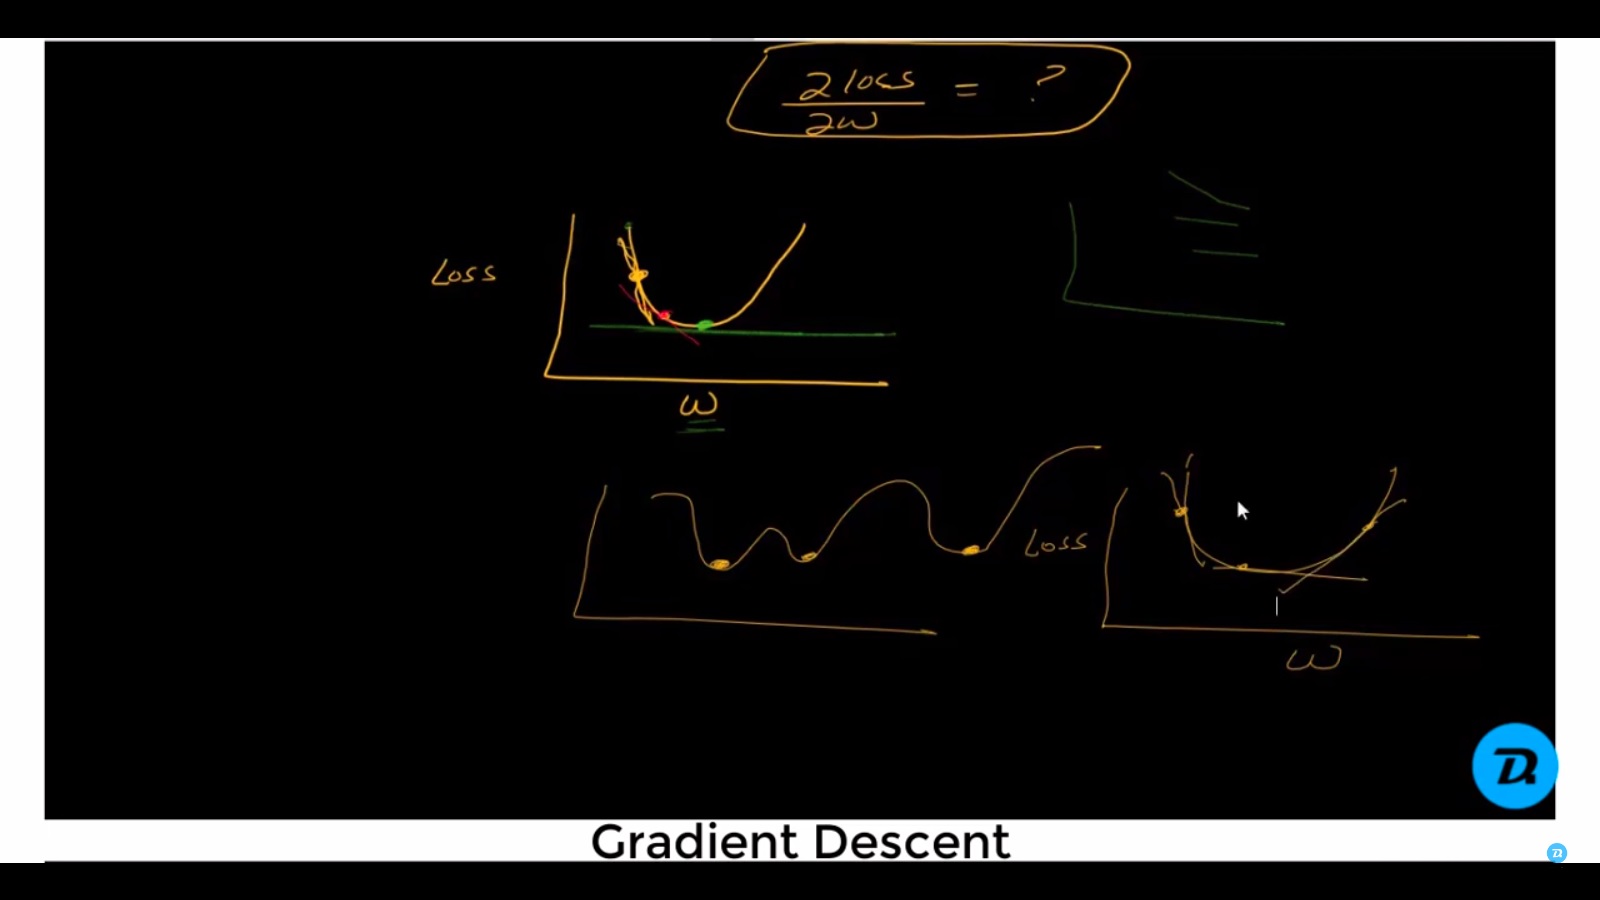 ∂ loss
―――― = ?
∂w
Loss
w
Loss
w
Gradient Descent